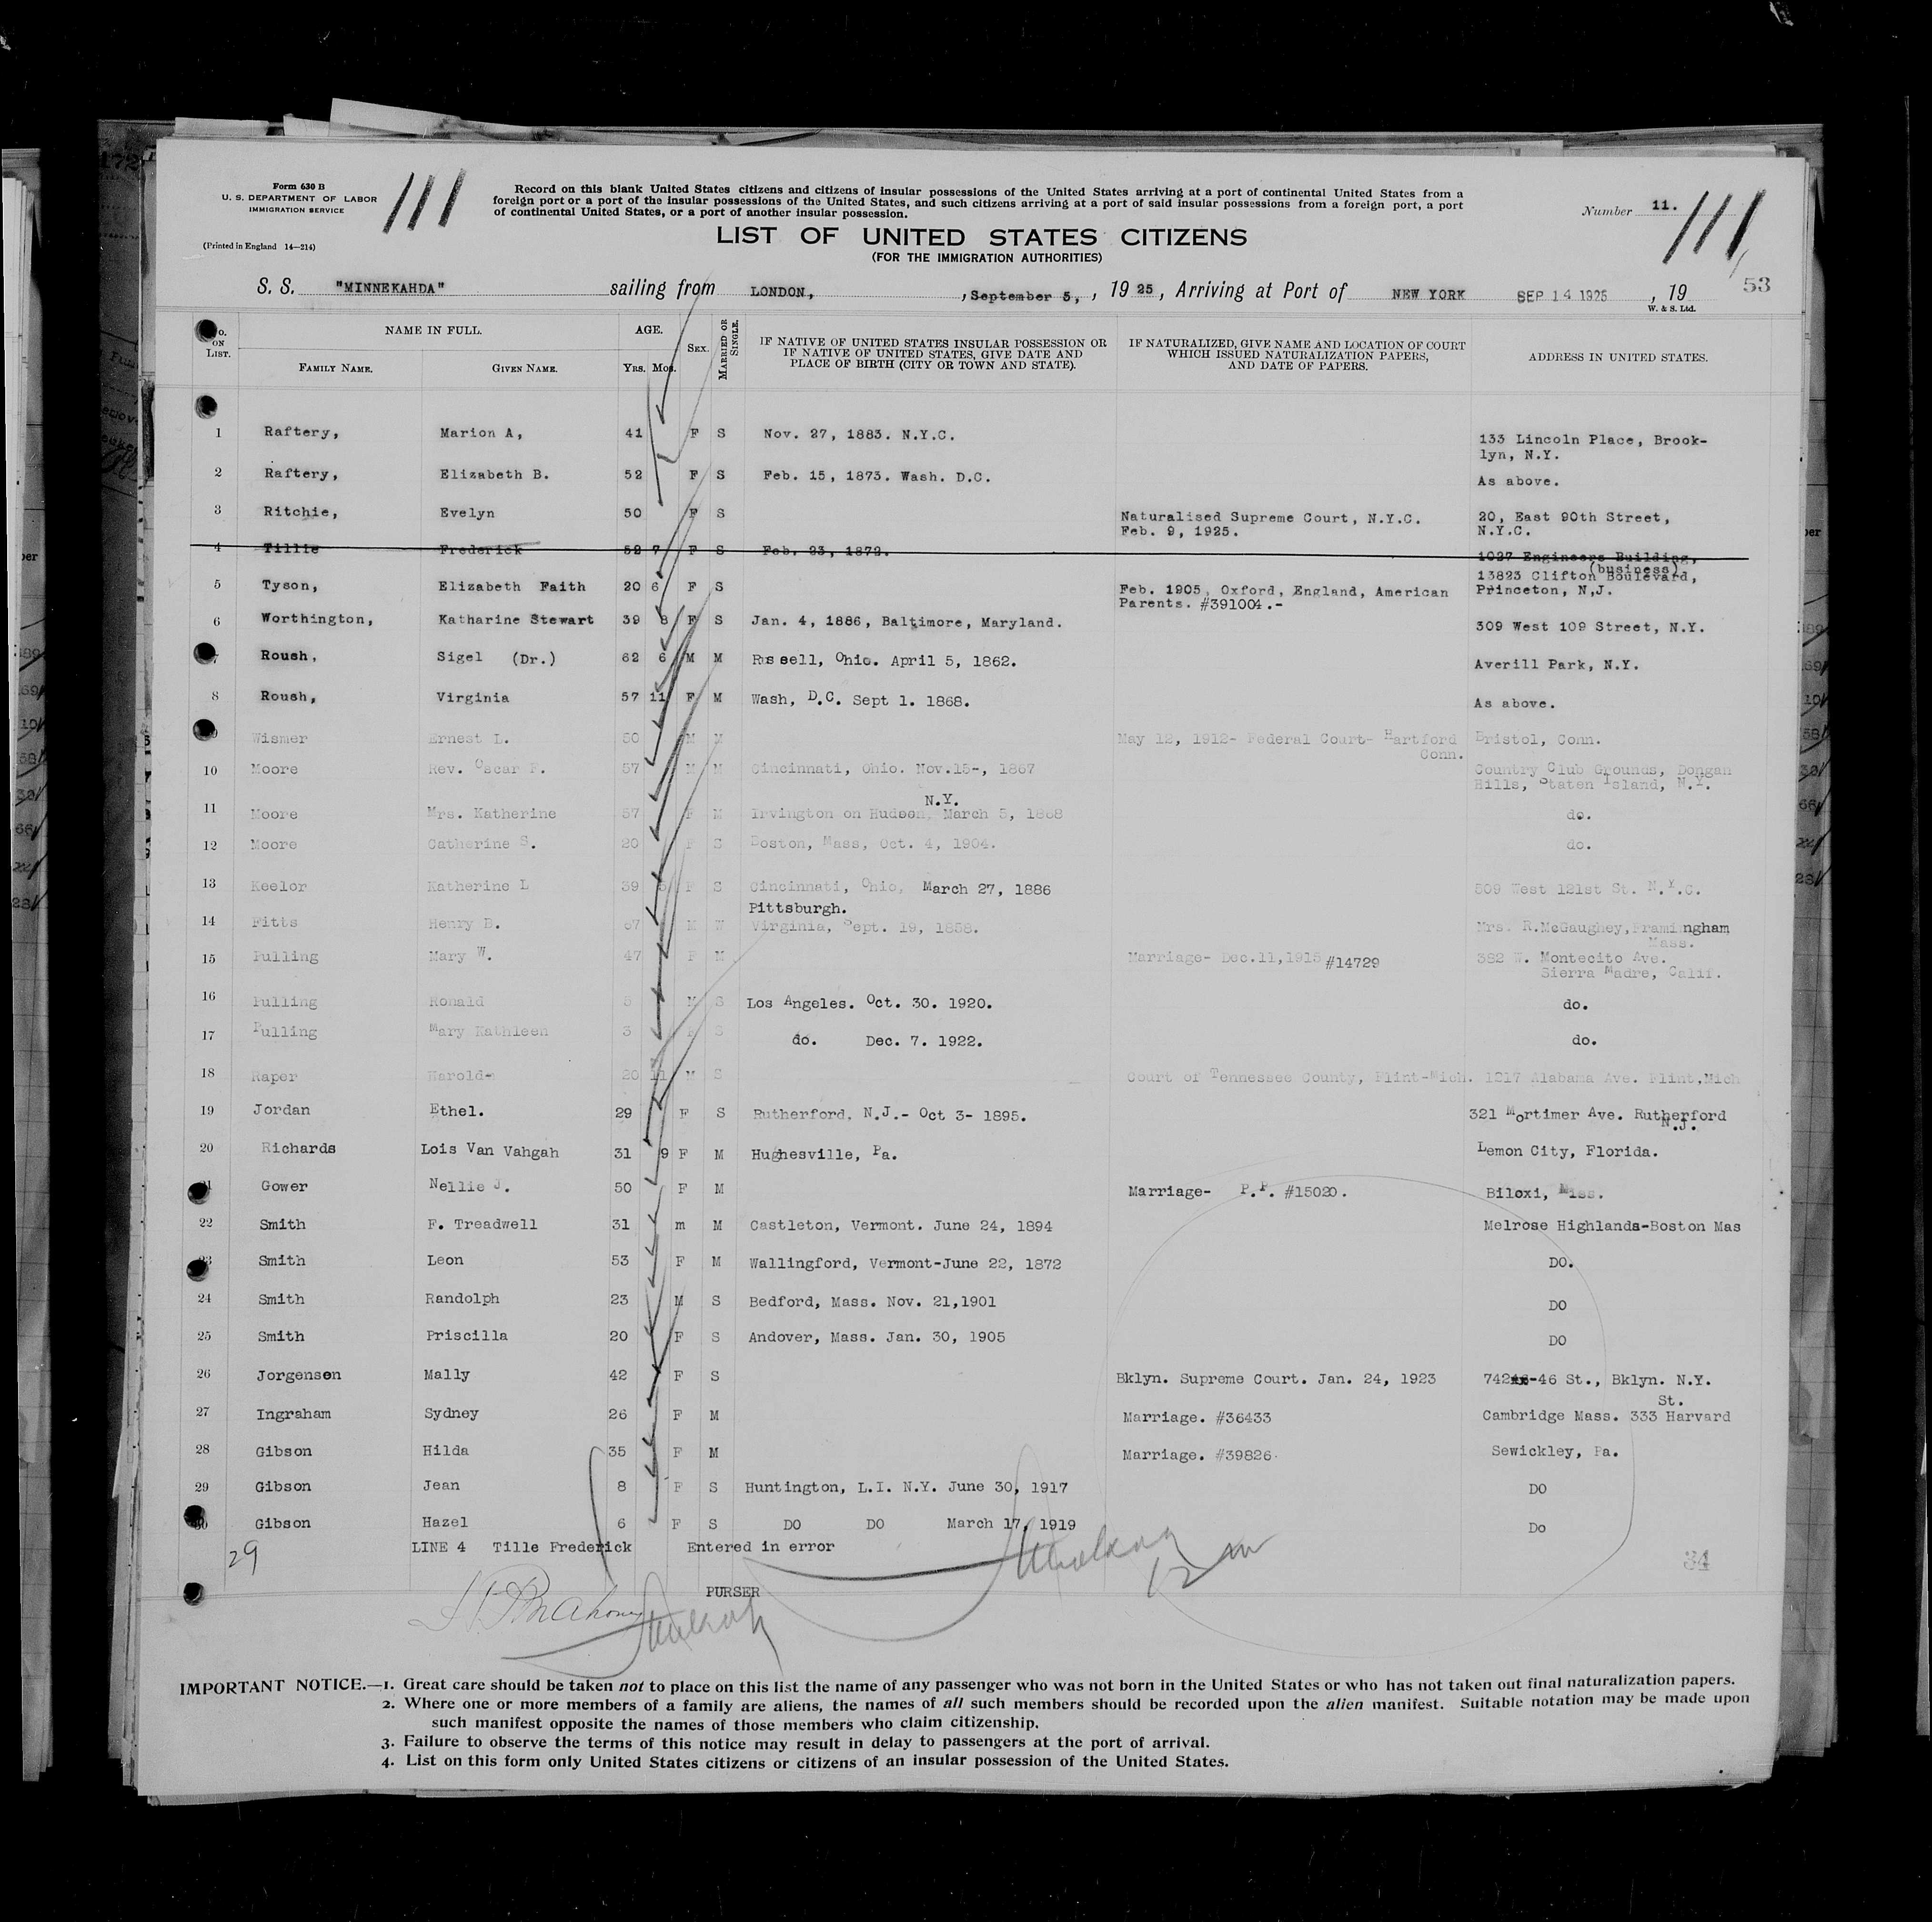 Form 630 B
U. S. DEPARTMENT OF LABOR
IMMIGRATION SERVICE
(Printed in England 14—214)
111
Record on this blank United States citizens and citizens of insular possessions of the United States arriving at a port of continental United States from a
foreign port or a port of the insular possessions of the United States, and such citizens arriving at a port of said insular possessions from a foreign port, a port
of continental United States, or a port of another insular possession.
Number 11.
111
LIST OF UNITED STATES CITIZENS
(FOR THE IMMIGRATION AUTHORITIES)
53
S. S. "MINNEKAHDA" sailing from LONDON, , September 5, , 19 25 , Arriving at Port of NEW YORK SEP 14 1925 , 19
W. & S. Ltd.
No. ON LIST. NAME IN FULL. FAMILY NAME. GIVEN NAME. AGE. YRS. MOS. SEX. MARRIED OR SINGLE. IF NATIVE OF UNITED STATES INSULAR POSSESSION OR IF NATIVE OF UNITED STATES, GIVE DATE AND PLACE OF BIRTH (CITY OR TOWN AND STATE). IF NATURALIZED, GIVE NAME AND LOCATION OF COURT WHICH ISSUED NATURALIZATION PAPERS, AND DATE OF PAPERS. ADDRESS IN UNITED STATES.
1 Raftery, Marion A, 41 F S Nov. 27, 1883. N.Y.C. 133 Lincoln Place, Brook-
lyn, N.Y.
2 Raftery, Elizabeth B. 52 F S Feb. 15, 1873. Wash. D.C. As above.
3 Ritchie, Evelyn 50 F S Naturalised Supreme Court, N.Y.C. 20, East 90th Street,
Feb. 9, 1925. N.Y.C.
4 Tillie Frederick 52 7 F S Feb. 23, 1872. 1027 Engineers Building,
(business)
13823 Clifton Boulevard,
5 Tyson, Elizabeth Faith 20 6 F S Feb. 1905, Oxford, England, American Princeton, N,J.
Parents. #391004.-
6 Worthington, Katharine Stewart 39 8 F S Jan. 4, 1886, Baltimore, Maryland. 309 West 109 Street, N.Y.
7 Roush, Sigel (Dr.) 62 6 M M Russell, Ohio. April 5, 1862. Averill Park, N.Y.
8 Roush, Virginia 57 11 F M Wash, D.C. Sept 1. 1868. As above.
9 Wismer Ernest L. 50 M M May 12, 1912- Federal Court- Hartford Bristol, Conn.
Conn.
10 Moore Rev. Oscar F. 57 M M Cincinnati, Ohio. Nov.15-, 1867 Country Club Grounds, Dongan
Hills, Staten Island, N.Y.
N.Y.
11 Moore Mrs. Katherine 57 F M Irvington on Hudson, March 5, 1868 do.
12 Moore Catherine S. 20 F S Boston, Mass, Oct. 4, 1904. do.
13 Keelor Katherine L 39 5 F S Cincinnati, Ohio, March 27, 1886 509 West 121st St. N.Y.C.
Pittsburgh.
14 Fitts Henry B. 67 M W Virginia, Sept. 19, 1858. Mrs. R.McGaughey,Framingham
Mass.
15 Pulling Mary W. 47 F M Marriage- Dec.11,1915 #14729 382 W. Montecito Ave.
Sierra Madre, Calif.
16 Pulling Ronald 5 M S Los Angeles. Oct. 30. 1920. do.
17 Pulling Mary Kathleen 3 F S do. Dec. 7. 1922. do.
18 Raper Harold- 20 11 M S Court of Tennessee County, Flint-Mich. 1217 Alabama Ave. Flint,Mich
19 Jordan Ethel. 29 F S Rutherford, N.J.- Oct 3- 1895. 321 Mortimer Ave. Rutherford
N.J.
20 Richards Lois Van Vahgah 31 9 F M Hughesville, Pa. Lemon City, Florida.
21 Gower Nellie J. 50 F M Marriage- P.P. #15020. Biloxi, Miss.
22 Smith F. Treadwell 31 m M Castleton, Vermont. June 24, 1894 Melrose Highlands-Boston Mas
23 Smith Leon 53 F M Wallingford, Vermont-June 22, 1872 DO.
24 Smith Randolph 23 M S Bedford, Mass. Nov. 21,1901 DO
25 Smith Priscilla 20 F S Andover, Mass. Jan. 30, 1905 DO
26 Jorgensen Mally 42 F S Bklyn. Supreme Court. Jan. 24, 1923 742 -46 St., Bklyn. N.Y.
St.
27 Ingraham Sydney 26 F M Marriage. #36433 Cambridge Mass. 333 Harvard
28 Gibson Hilda 35 F M Marriage. #39826. Sewickley, Pa.
29 Gibson Jean 8 F S Huntington, L.I. N.Y. June 30, 1917 DO
30 Gibson Hazel 6 F S DO DO March 17, 1919 Do
29 LINE 4 Tille Frederick Entered in error
34
12
PURSER
IMPORTANT NOTICE.—1. Great care should be taken not to place on this list the name of any passenger who was not born in the United States or who has not taken out final naturalization papers.
2. Where one or more members of a family are aliens, the names of all such members should be recorded upon the alien manifest. Suitable notation may be made upon
such manifest opposite the names of those members who claim citizenship.
3. Failure to observe the terms of this notice may result in delay to passengers at the port of arrival.
4. List on this form only United States citizens or citizens of an insular possession of the United States.